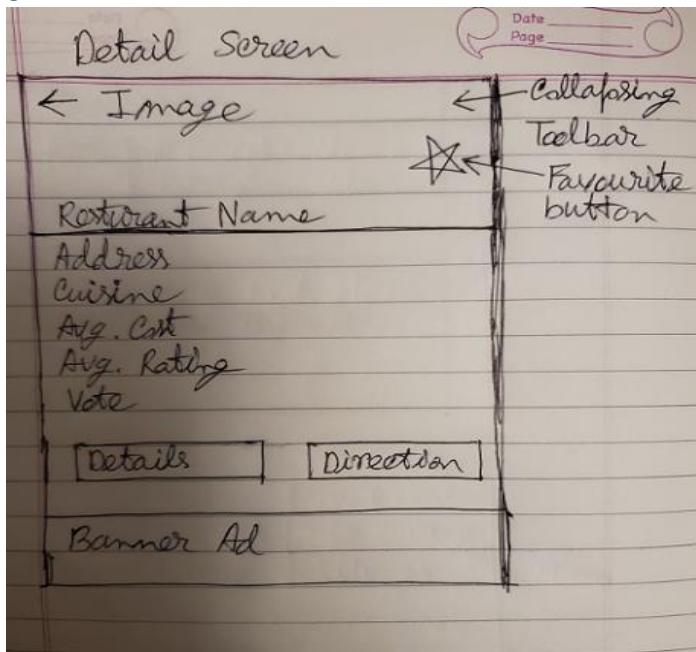 Date
Page
Detail Screen
← Image
← Collapsing
Toolbar
← Favourite
button
Resturant Name
Address
Cuisine
Avg. Cost
Avg. Rating
Vote
Details
Direction
Banner Ad